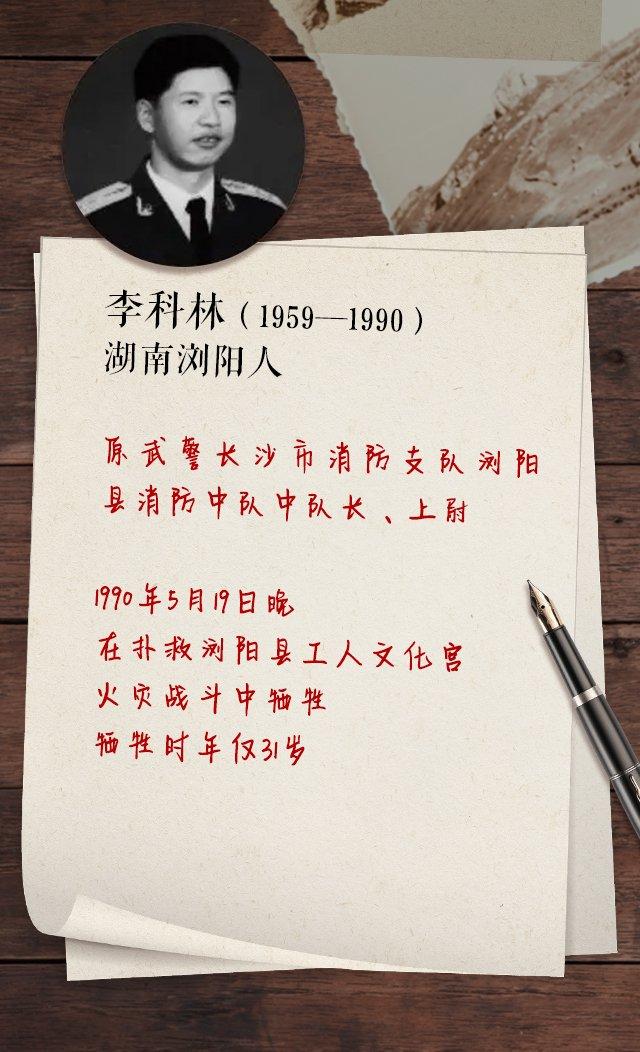 李科林（1959—1990）
湖南浏阳人
原武警长沙市消防支队浏阳
县消防中队中队长、上尉
1990年5月19日晚
在扑救浏阳县工人文化宫
火灾战斗中牺牲
牺牲时年仅31岁